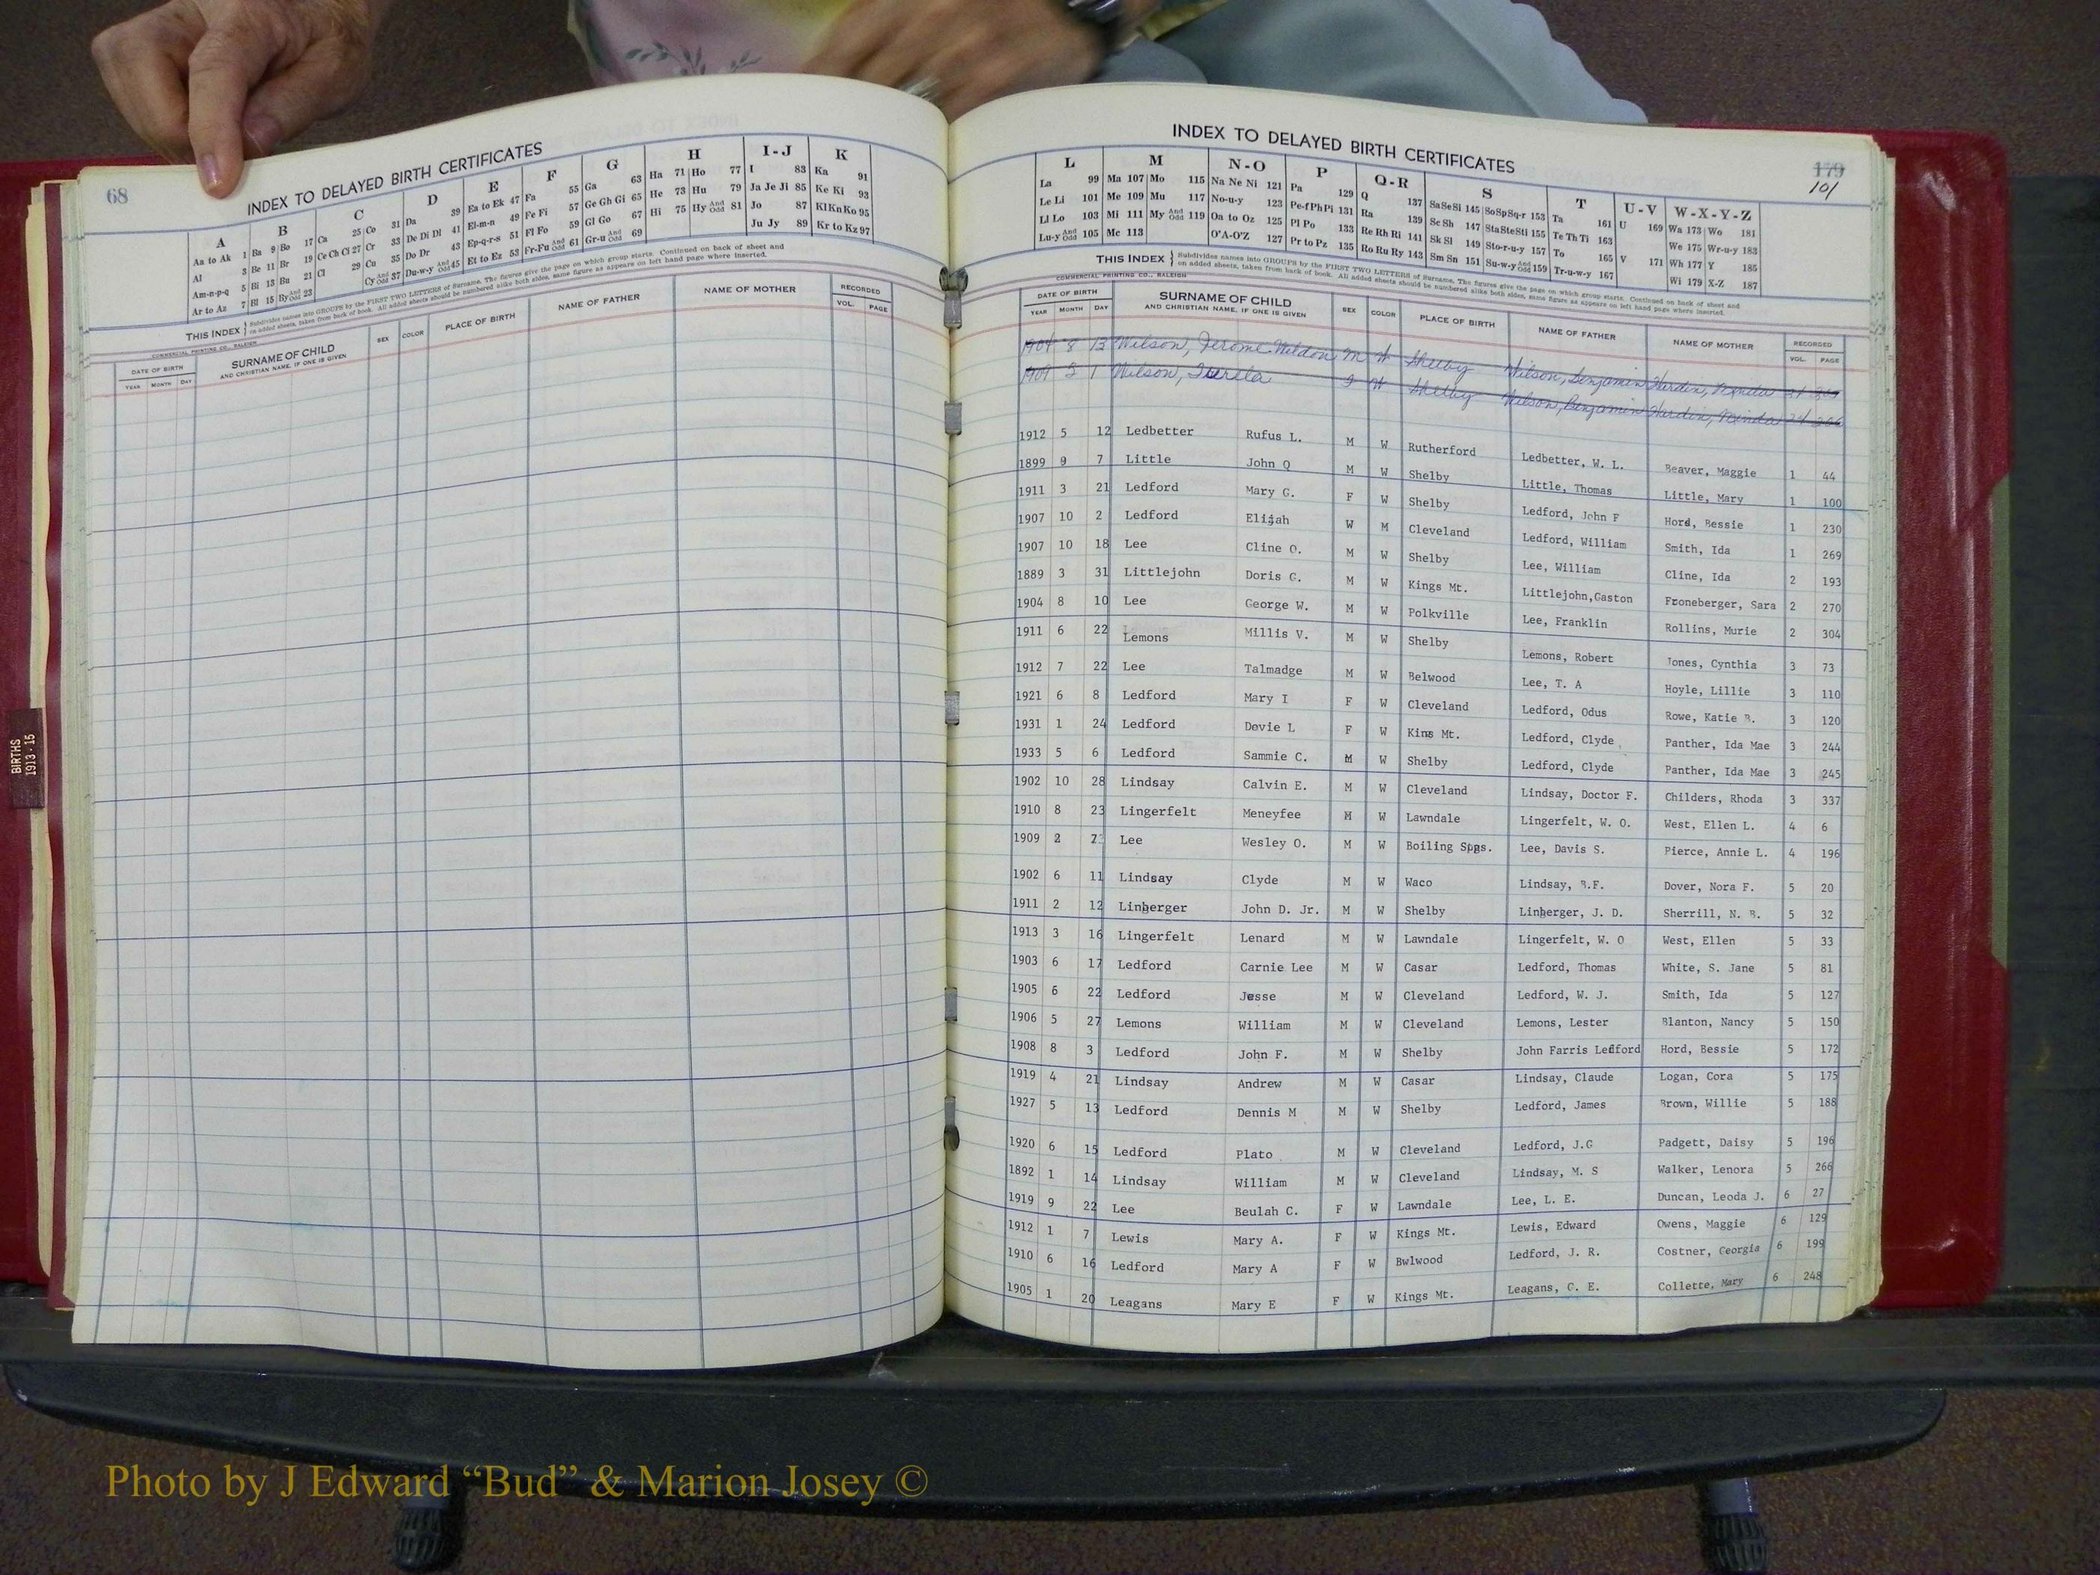 68
INDEX TO DELAYED BIRTH CERTIFICATES
A B C D E F G H I-J K
Aa to Ak 1 Ba 9 Bo 17 Ca 25 Co 31 Da 39 Ea to Ek 47 Fa 55 Ga 63 Ha 71 Ho 77 I 83 Ka 91
Al 3 Be 11 Br 19 Ce Ch Ci 27 Cr 33 De Di Dl 41 El-m-n 49 Fe Fi 57 Ge Gh Gi 65 He 73 Hu 79 Ja Je Ji 85 Ke Ki 93
Am-n-p-q 5 Bi 13 Bu 21 Cl 29 Cu 35 Do Dr 43 Ep-q-r-s 51 Fl Fo 59 Gl Go 67 Hi 75 Hy And Odd 81 Jo 87 Kl Kn Ko 95
Ar to Az 7 Bl 15 By And Odd 23 Cy And Odd 37 Du-w-y And Odd 45 Et to Ez 53 Fr-Fu And Odd 61 Gr-u And Odd 69 Ju Jy 89 Kr to Kz 97
THIS INDEX } Subdivides names into GROUPS by the FIRST TWO LETTERS of Surname. The figures give the page on which group starts. Continued on back of sheet and
on added sheets, taken from back of book. All added sheets should be numbered alike both sides, same figure as appears on left hand page where inserted.
COMMERCIAL PRINTING CO., RALEIGH
DATE OF BIRTH SURNAME OF CHILD SEX COLOR PLACE OF BIRTH NAME OF FATHER NAME OF MOTHER RECORDED
YEAR MONTH DAY AND CHRISTIAN NAME, IF ONE IS GIVEN VOL. PAGE
BIRTHS
1913-15
INDEX TO DELAYED BIRTH CERTIFICATES
179
101
L M N-O P Q-R S T U-V W-X-Y-Z
La 99 Ma 107 Mo 115 Na Ne Ni 121 Pa 129 Q 137 Sa Se Si 145 So Sp Sq-r 153 Ta 161 U 169 Wa 173 Wo 181
Le Li 101 Me 109 Mu 117 No-u-y 123 Pe-f Ph Pi 131 Ra 139 Sc Sh 147 Sta Ste Sti 155 Te Th Ti 163 We 175 Wr-u-y 183
Ll Lo 103 Mi 111 My And Odd 119 Oa to Oz 125 Pl Po 133 Re Rh Ri 141 Sk Sl 149 Sto-r-u-y 157 To 165 V 171 Wh 177 Y 185
Lu-y And Odd 105 Mc 113 O'A-O'Z 127 Pr to Pz 135 Ro Ru Ry 143 Sm Sn 151 Su-w-y And Odd 159 Tr-u-w-y 167 Wi 179 X-Z 187
THIS INDEX } Subdivides names into GROUPS by the FIRST TWO LETTERS of Surname. The figures give the page on which group starts. Continued on back of sheet and
on added sheets, taken from back of book. All added sheets should be numbered alike both sides, same figure as appears on left hand page where inserted.
COMMERCIAL PRINTING CO., RALEIGH
DATE OF BIRTH SURNAME OF CHILD SEX COLOR PLACE OF BIRTH NAME OF FATHER NAME OF MOTHER RECORDED
YEAR MONTH DAY AND CHRISTIAN NAME, IF ONE IS GIVEN VOL. PAGE
8 13 Wilson, Jerome Weldon M W Shelby Wilson, Benjamin Hardin,
1909 1 Wilson, W Shelby Wilson, Benjamin Hardin,
1912 5 12 Ledbetter Rufus L. M W Rutherford Ledbetter, W. L. Beaver, Maggie 1 44
1899 9 7 Little John Q M W Shelby Little, Thomas Little, Mary 1 100
1911 3 21 Ledford Mary G. F W Shelby Ledford, John F Hord, Bessie 1 230
1907 10 2 Ledford Elijah W M Cleveland Ledford, William Smith, Ida 1 269
1907 10 18 Lee Cline O. M W Shelby Lee, William Cline, Ida 2 193
1889 3 31 Littlejohn Doris G. M W Kings Mt. Littlejohn,Gaston Froneberger, Sara 2 270
1904 8 10 Lee George W. M W Polkville Lee, Franklin Rollins, Murie 2 304
1911 6 22 Lemons Millis V. M W Shelby Lemons, Robert Jones, Cynthia 3 73
1912 7 22 Lee Talmadge M W Belwood Lee, T. A Hoyle, Lillie 3 110
1921 6 8 Ledford Mary I F W Cleveland Ledford, Odus Rowe, Katie B. 3 120
1931 1 24 Ledford Dovie L F W Kins Mt. Ledford, Clyde Panther, Ida Mae 3 244
1933 5 6 Ledford Sammie C. M W Shelby Ledford, Clyde Panther, Ida Mae 3 245
1902 10 28 Lindsay Calvin E. M W Cleveland Lindsay, Doctor F. Childers, Rhoda 3 337
1910 8 23 Lingerfelt Meneyfee M W Lawndale Lingerfelt, W. O. West, Ellen L. 4 6
1909 2 Lee Wesley O. M W Boiling Spgs. Lee, Davis S. Pierce, Annie L. 4 196
1902 6 11 Lindsay Clyde M W Waco Lindsay, B.F. Dover, Nora F. 5 20
1911 2 12 Linberger John D. Jr. M W Shelby Linberger, J. D. Sherrill, N. B. 5 32
1913 3 16 Lingerfelt Lenard M W Lawndale Lingerfelt, W. O West, Ellen 5 33
1903 6 17 Ledford Carnie Lee M W Casar Ledford, Thomas White, S. Jane 5 81
1905 6 22 Ledford Jesse M W Cleveland Ledford, W. J. Smith, Ida 5 127
1906 5 27 Lemons William M W Cleveland Lemons, Lester Blanton, Nancy 5 150
1908 8 3 Ledford John F. M W Shelby John Farris Ledford Hord, Bessie 5 172
1919 4 21 Lindsay Andrew M W Casar Lindsay, Claude Logan, Cora 5 175
1927 5 13 Ledford Dennis M M W Shelby Ledford, James Brown, Willie 5 188
1920 6 15 Ledford Plato M W Cleveland Ledford, J.G Padgett, Daisy 5 196
1892 1 14 Lindsay William M W Cleveland Lindsay, M. S Walker, Lenora 5 266
1919 9 22 Lee Beulah C. F W Lawndale Lee, L. E. Duncan, Leoda J. 6 27
1912 1 7 Lewis Mary A. F W Kings Mt. Lewis, Edward Owens, Maggie 6 129
1910 6 16 Ledford Mary A F W Bwlwood Ledford, J. R. Costner, Georgia 6 199
1905 1 20 Leagans Mary E F W Kings Mt. Leagans, C. E. Collette, Mary 6 248
Photo by J Edward “Bud” & Marion Josey ©